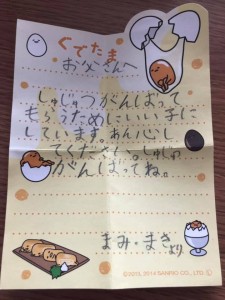 ぐでたま
お父さんへ
しゅじゅつがんばって
もらうためにいい子に
しています。あん心し
てください。しゅじゅつ
がんばってね。
まみ・まきより
©2013, 2014 SANRIO CO., LTD.